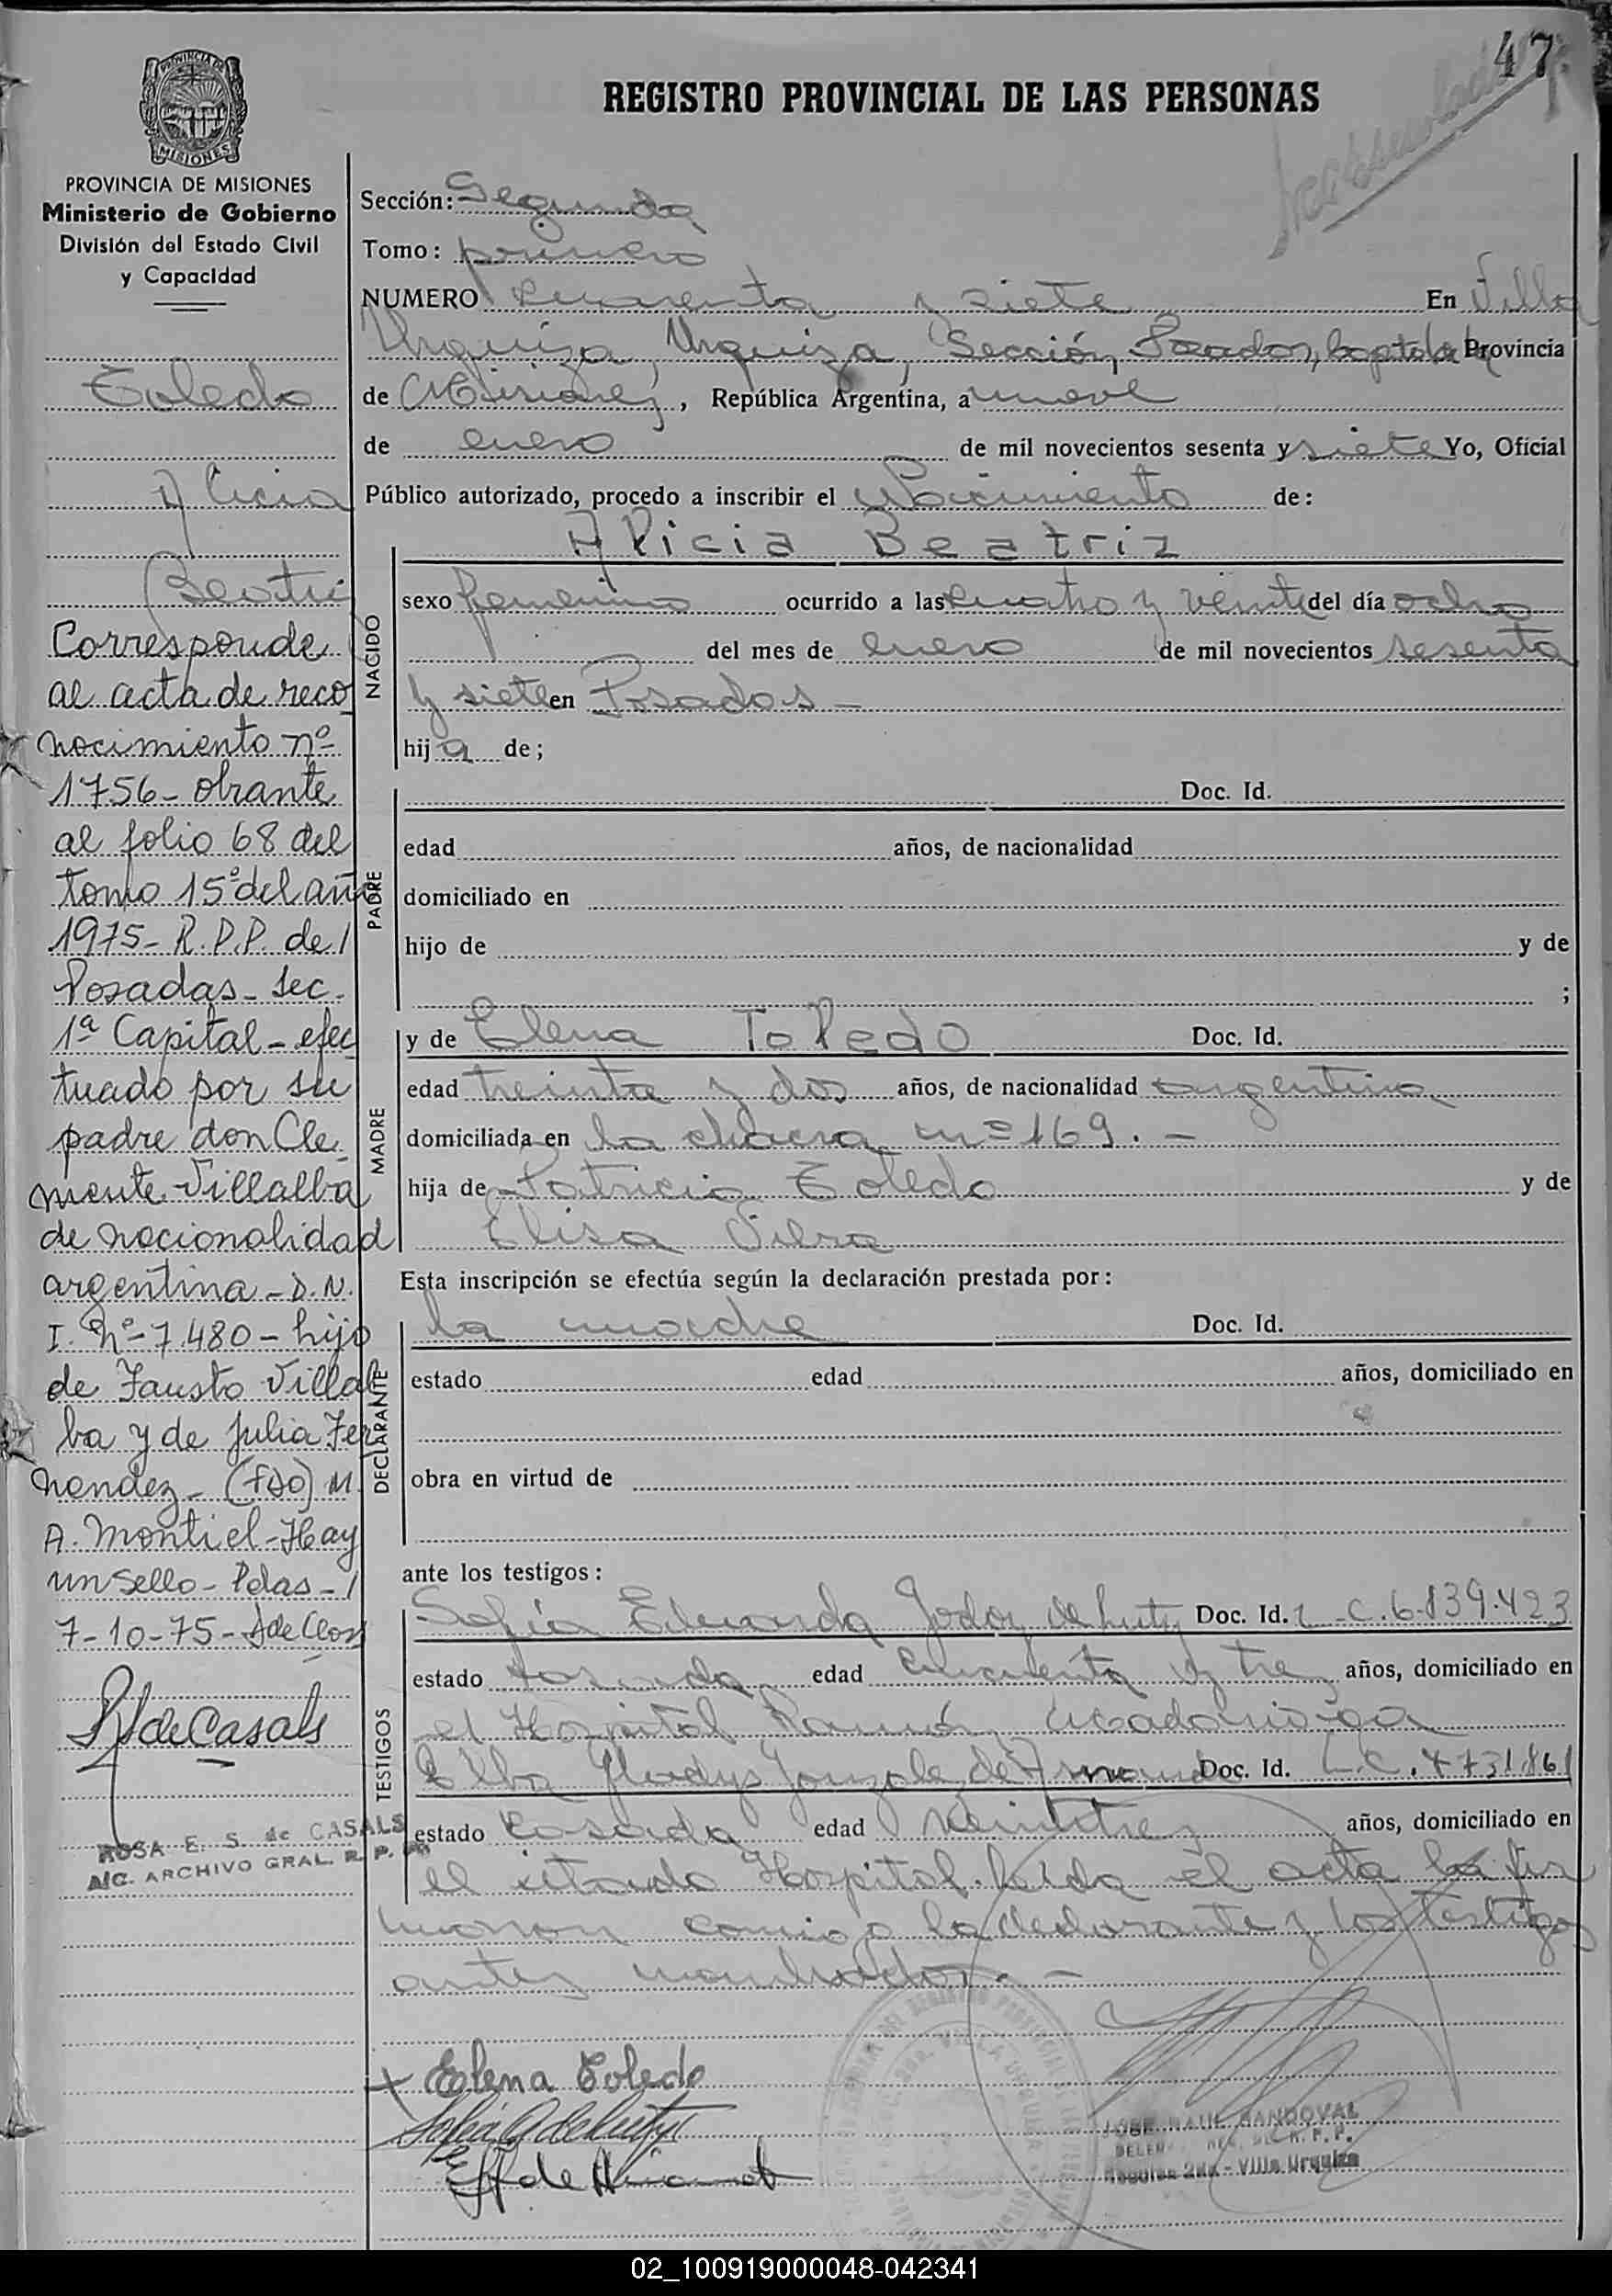 47
REGISTRO PROVINCIAL DE LAS PERSONAS
PROVINCIA DE
MISIONES
PROVINCIA DE MISIONES
Ministerio de Gobierno
División del Estado Civil
y Capacidad
Toledo
Alicia
Beatriz
Corresponde
al acta de reco
nocimiento nº
1756 - obrante
al folio 68 del
tomo 15º del año
1975 - R.P.P. de /
Posadas - Sec.
1ª Capital - efec
tuado por su
padre don Cle
mente Villalba
de nacionalidad
argentina - D.N.
I. Nº - 7.480 - hijo
de Fausto Villal
ba y de Julia Fer
nendez - (FDO) M.
A. Montiel - Hay
un sello - Pdas - /
7-10-75 -
ROSA E. S. de CASALS
A/C. ARCHIVO GRAL. R. P. P.
Sección: Segunda
Tomo: primero
NUMERO cuarenta y siete En Villa
Urquiza, Urquiza, Sección, Posadas, Capital de la Provincia
de Misiones, República Argentina, a nueve
de enero de mil novecientos sesenta y siete Yo, Oficial
Público autorizado, procedo a inscribir el Nacimiento de:
Alicia Beatriz
NACIDO
sexo femenino ocurrido a las cuatro y veinte del día ocho
del mes de enero de mil novecientos sesenta
y siete en Posadas -
hij a de;
PADRE
Doc. Id.
edad años, de nacionalidad
domiciliado en
hijo de y de
;
MADRE
y de Elena Toledo Doc. Id.
edad treinta y dos años, de nacionalidad argentina
domiciliada en la chacra nº 169. -
hija de Patricio Toledo y de
Elisa Silva
Esta inscripción se efectúa según la declaración prestada por:
DECLARANTE
la madre Doc. Id.
estado edad años, domiciliado en
obra en virtud de
ante los testigos:
TESTIGOS
Sofía Eduarda Godoy de Doc. Id. L.C. 6.839.423
estado casada edad cincuenta y tres años, domiciliado en
el Hospital Ramón Madariaga
Elba Gladys Gonzalez de Doc. Id. L.C. 4731861
estado casada edad veintitres años, domiciliado en
el citado Hospital. Leída el acta la fir
maron conmigo la declarante y los testigos
antes nombrados. -
Elena Toledo
JOSE RAUL SANDOVAL
R. P. P.
2da - Villa Urquiza
02_100919000048-042341